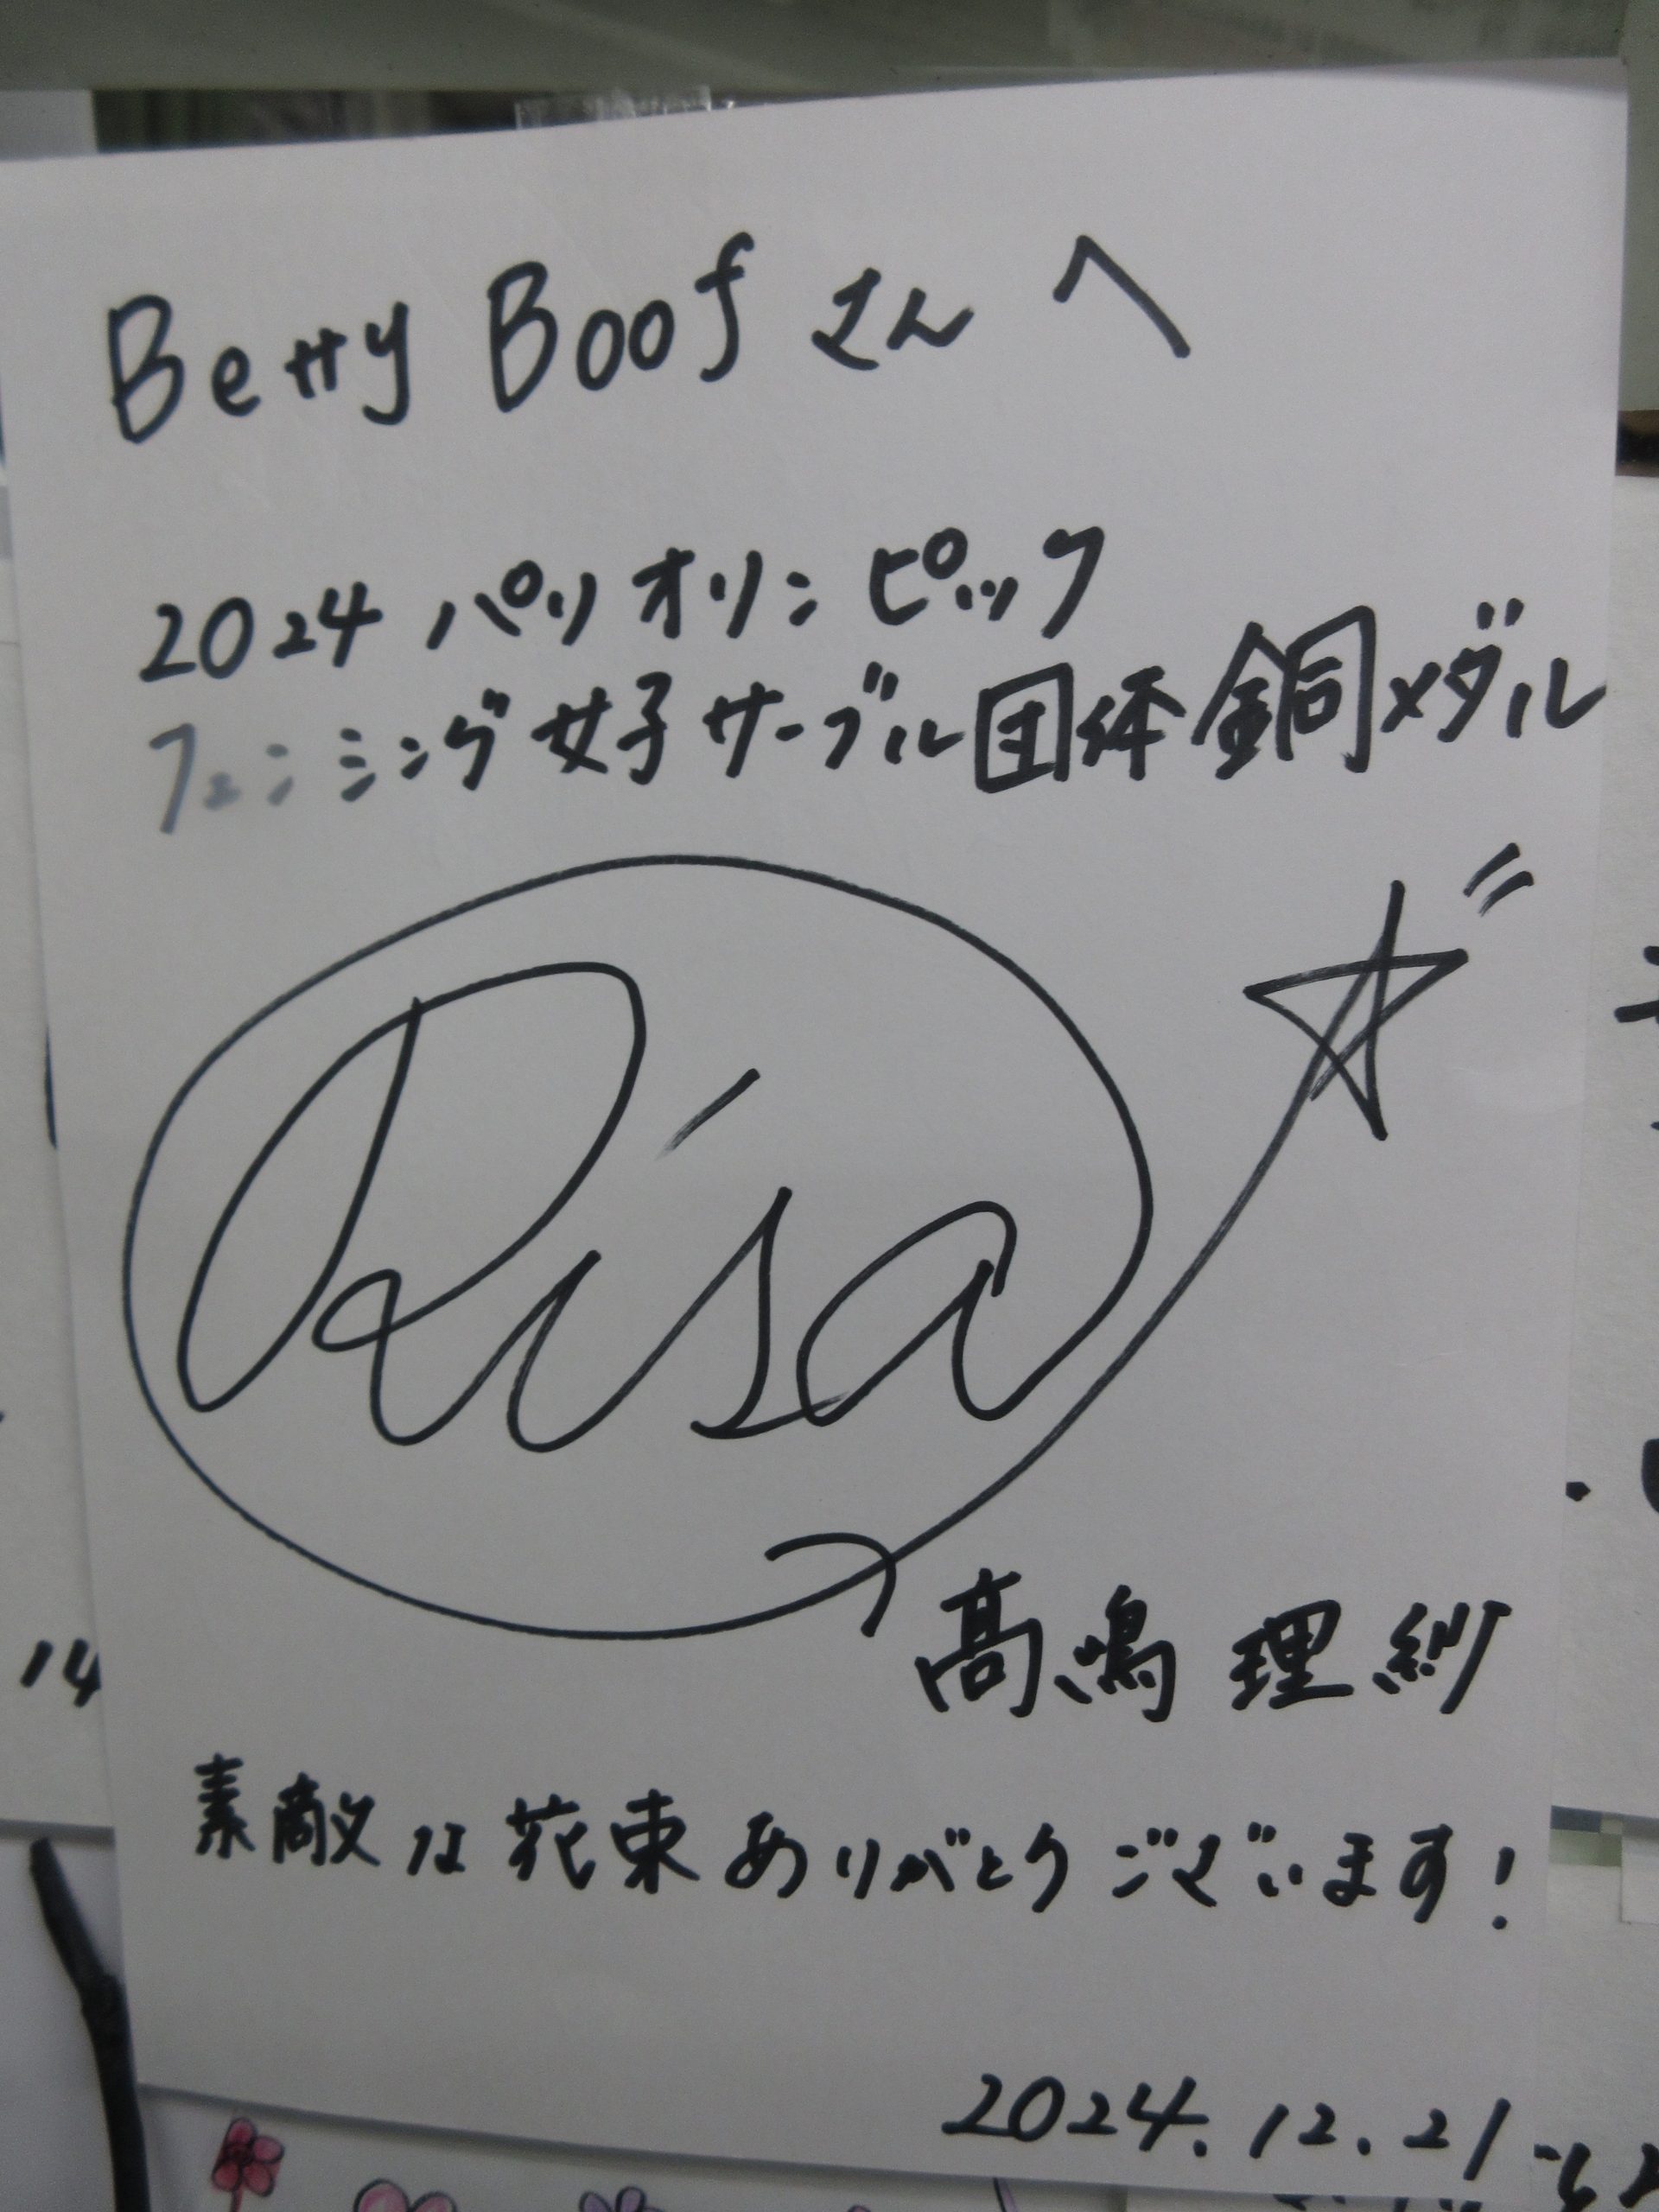 Betty Boofさんへ
2024 パリオリンピック
フェンシング女子サーブル団体銅メダル
Risa
髙嶋理紗
素敵な花束ありがとうございます!
2024.12.21
14